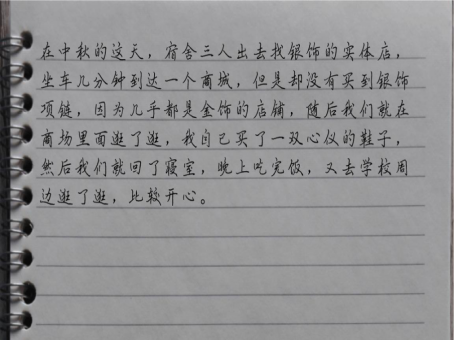 在中秋的这天，宿舍三人出去找银饰的实体店，
坐车几分钟到达一个商城，但是却没有买到银饰
项链，因为几乎都是金饰的店铺，随后我们就在
商场里面逛了逛，我自己买了一双心仪的鞋子，
然后我们就回了寝室，晚上吃完饭，又去学校周
边逛了逛，比较开心。